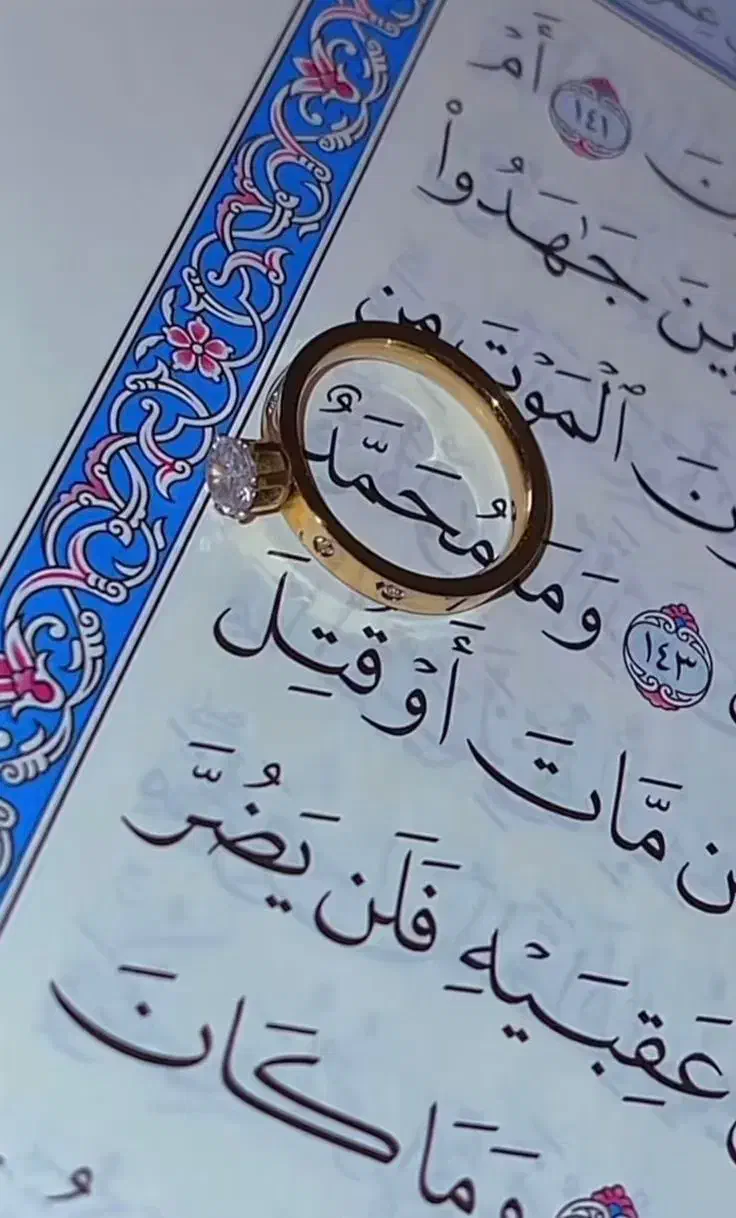 ١٤١ أَمْ
جَٰهَدُوا۟
ٱلْمَوْتَ مِن
١٤٣ وَمَا مُحَمَّدٌ
مَّاتَ أَوْ قُتِلَ
عَقِبَيْهِ فَلَن يَضُرَّ
وَمَا كَانَ